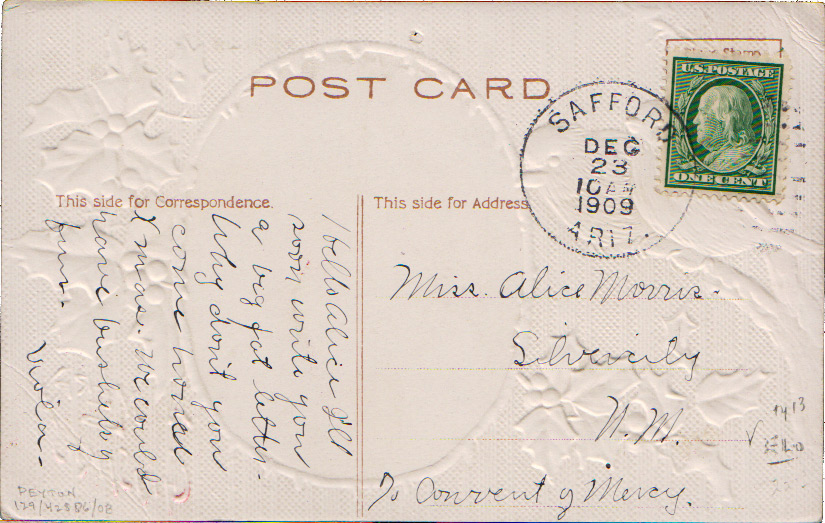 POST CARD
U.S. POSTAGE
ONE CENT
SAFFORD
DEC
23
10 AM
1909
ARIZ.
This side for Correspondence.
This side for Address
Hello Alice I'll
soon write you
a big fat letter.
Why don't you
come home
Xmas. We could
have bushels of
fun.
Viola-
Miss. Alice Morris.
Silvercity
N.M.
To Convent of Mercy.
PEYTON
129/42S86/08